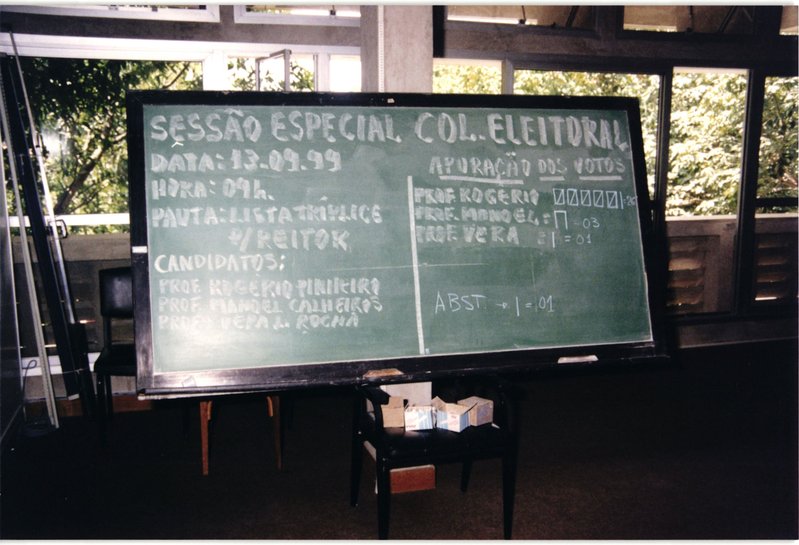 SESSÃO ESPECIAL COL. ELEITORAL
DATA: 13.09.99
HORA: 09h.
PAUTA: LISTA TRÍPLICE
P/ REITOR
CANDIDATOS:
PROF. ROGÉRIO PINHEIRO
PROF. MANOEL CALHEIROS
PROFª VERA L. ROCHA
APURAÇÃO DOS VOTOS
PROF. ROGÉRIO
PROF. MANOEL: = 03
PROFª VERA : = 01
ABST. → | = 01